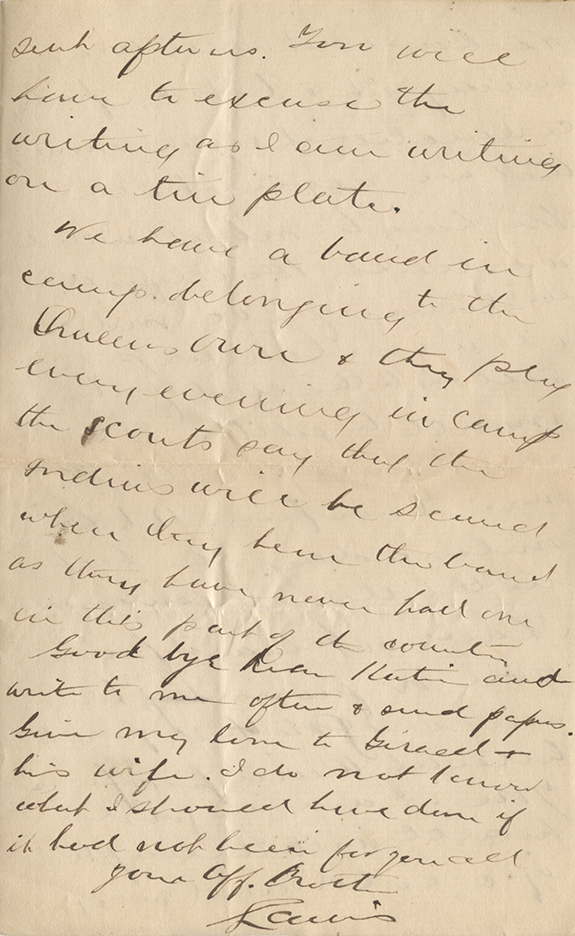 sent after us. You will
have to excuse the
writing as I am writing
on a tin plate.
We have a band in
camp. belonging to the
Queens Own & they play
every evening in camp
the scouts say that the
Indins will be scared
when they hear the band
as they have never had one
in this part of the country
Good bye dear Katie and
write to me often & send papers.
Give my love to &
his wife. I do not know
what I should have done if
it had not been for you all
your Aff. Broth
Lewis